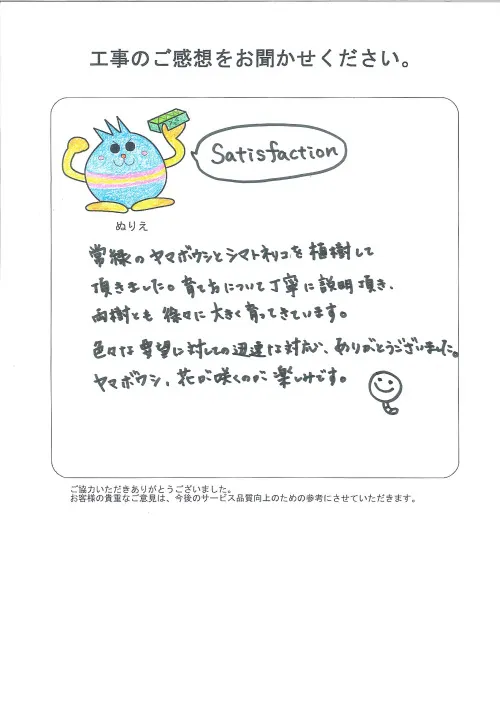 工事のご感想をお聞かせください。
Satisfaction
ぬりえ
常緑のヤマボウシとシマトネリコを植樹して
頂きました。育て方について丁寧に説明頂き、
両樹とも徐々に大きく育ってきています。
色々な要望に対しての迅速な対応、ありがとうございました。
ヤマボウシ、花が咲くのが楽しみです。
ご協力いただきありがとうございました。
お客様の貴重なご意見は、今後のサービス品質向上のための参考にさせていただきます。